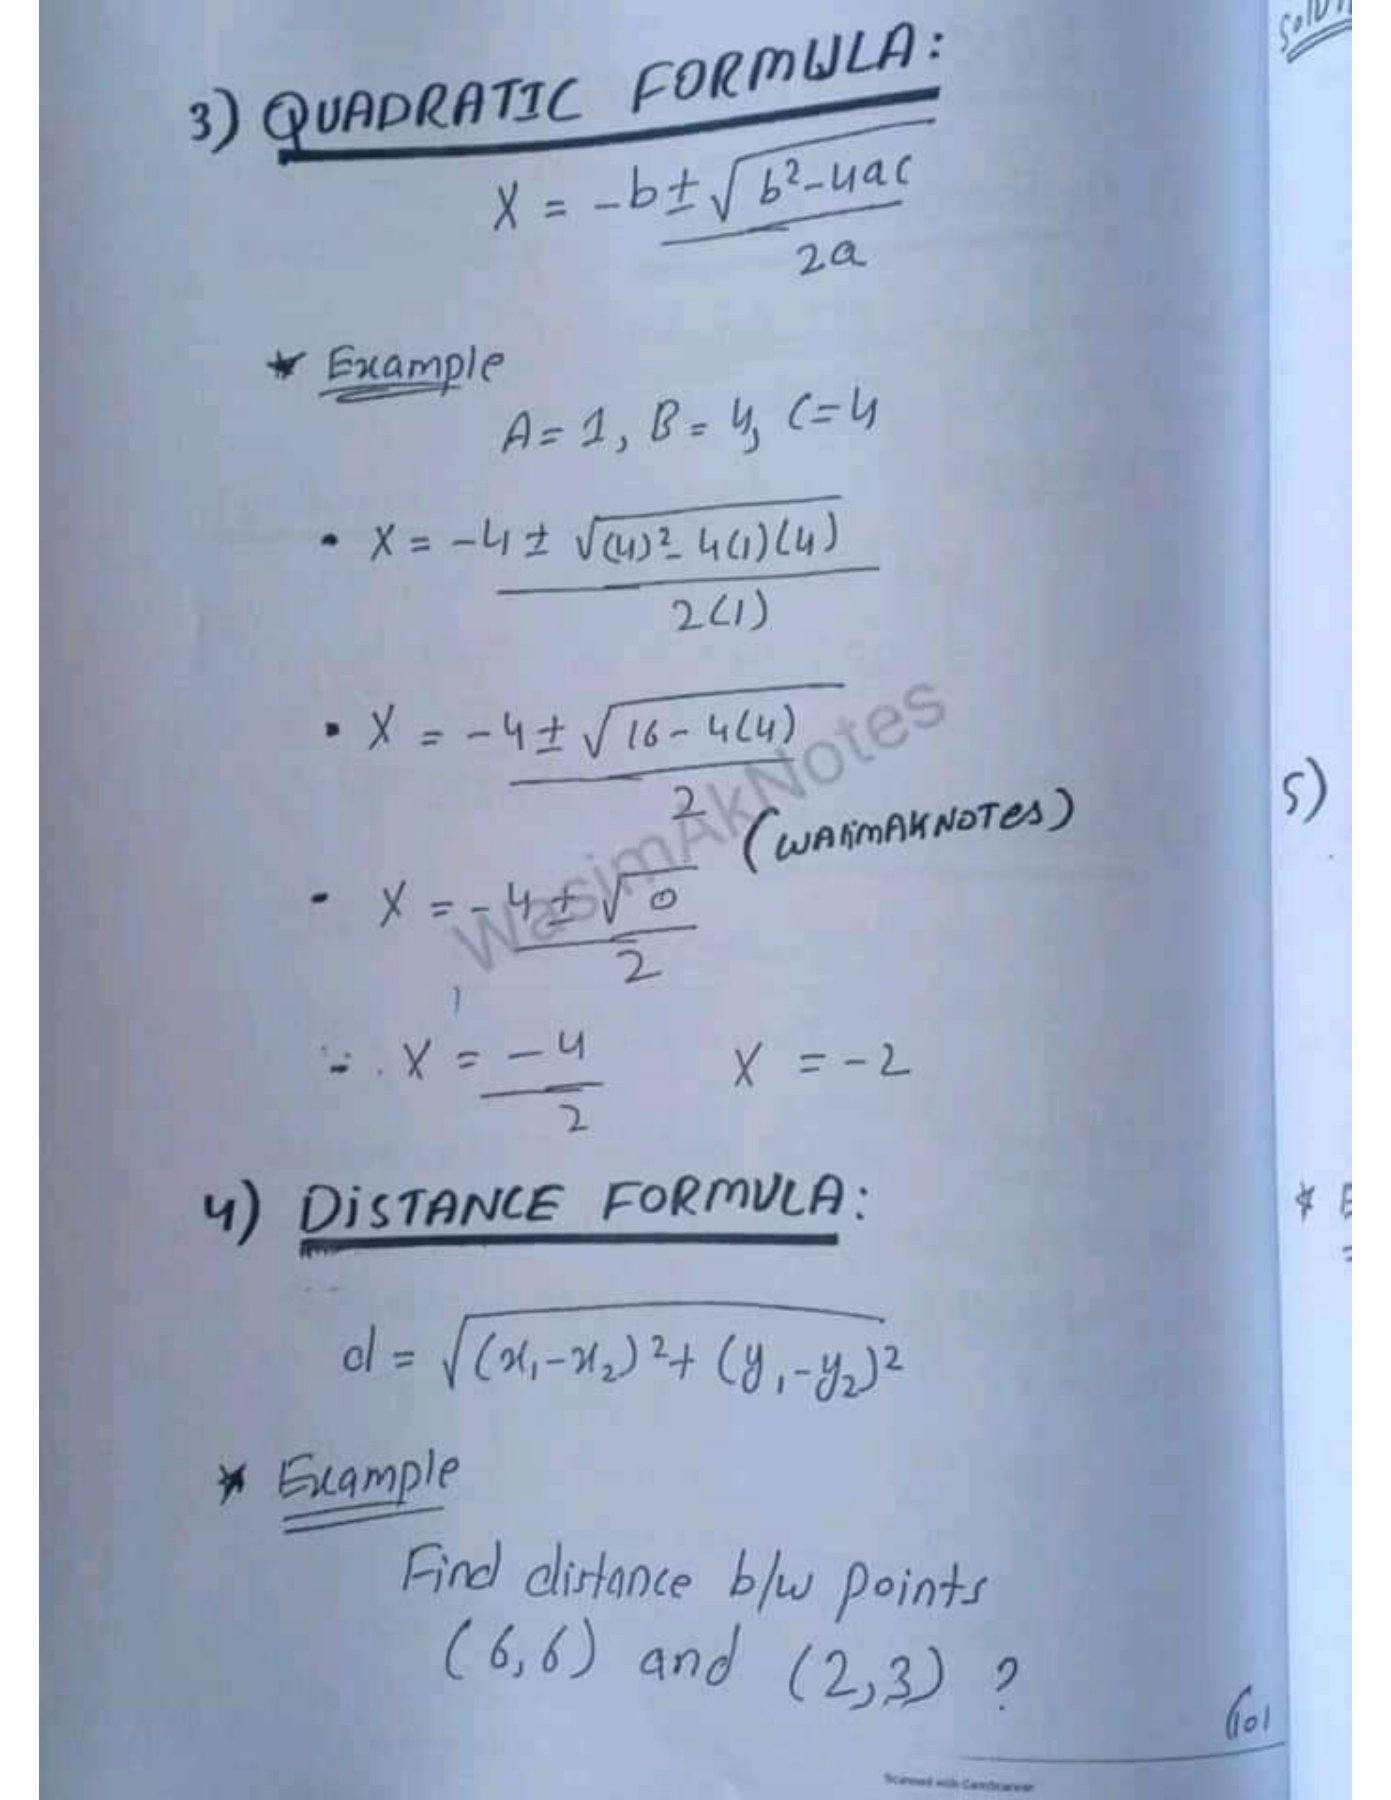 Solut
3) QUADRATIC FORMULA:
X = -b ± √b²-4ac
2a
* Example
A=1, B=4, C=4
• X = -4 ± √(4)²- 4(1)(4)
2(1)
• X = -4 ± √16 - 4(4)
2
(WASIMAKNOTES)
5)
WasimAkNotes
- X = -4 ± √0
2
∴ X = -4 X = -2
2
4) DISTANCE FORMULA:
* E
d = √(x₁-x₂)²+ (y₁-y₂)²
* Example
Find distance b/w points
(6,6) and (2,3) ?
101
Scanned with CamScanner